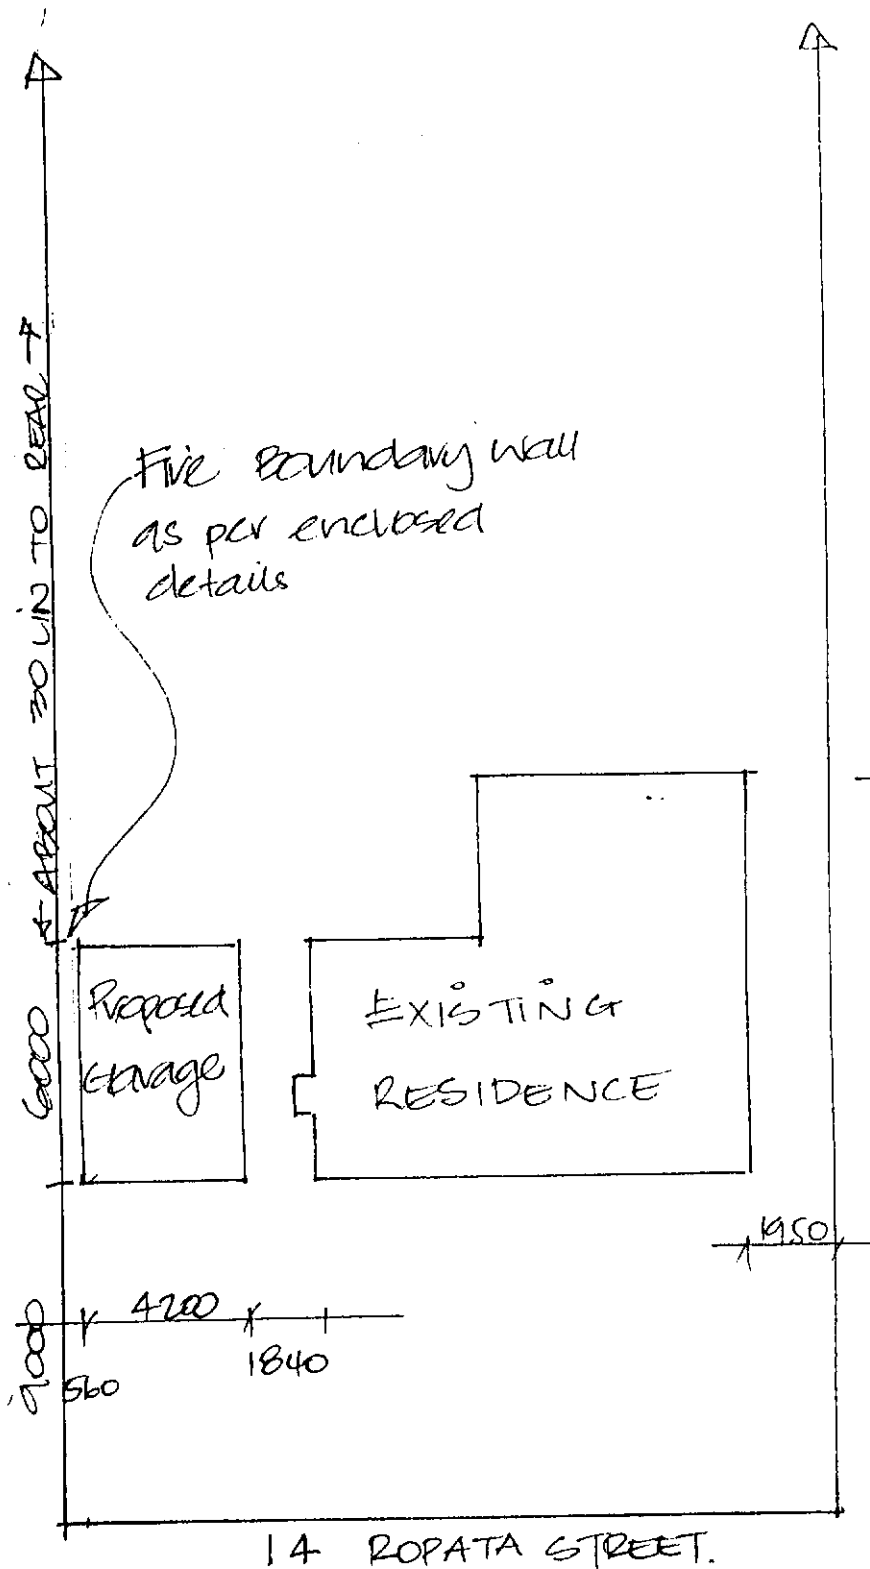 ← ABOUT 30 LIN TO REAR →
Fire Boundary wall
as per enclosed
details
Proposed
Garage
EXISTING
RESIDENCE
6000
1950
4200
1840
9000
560
14 ROPATA STREET.